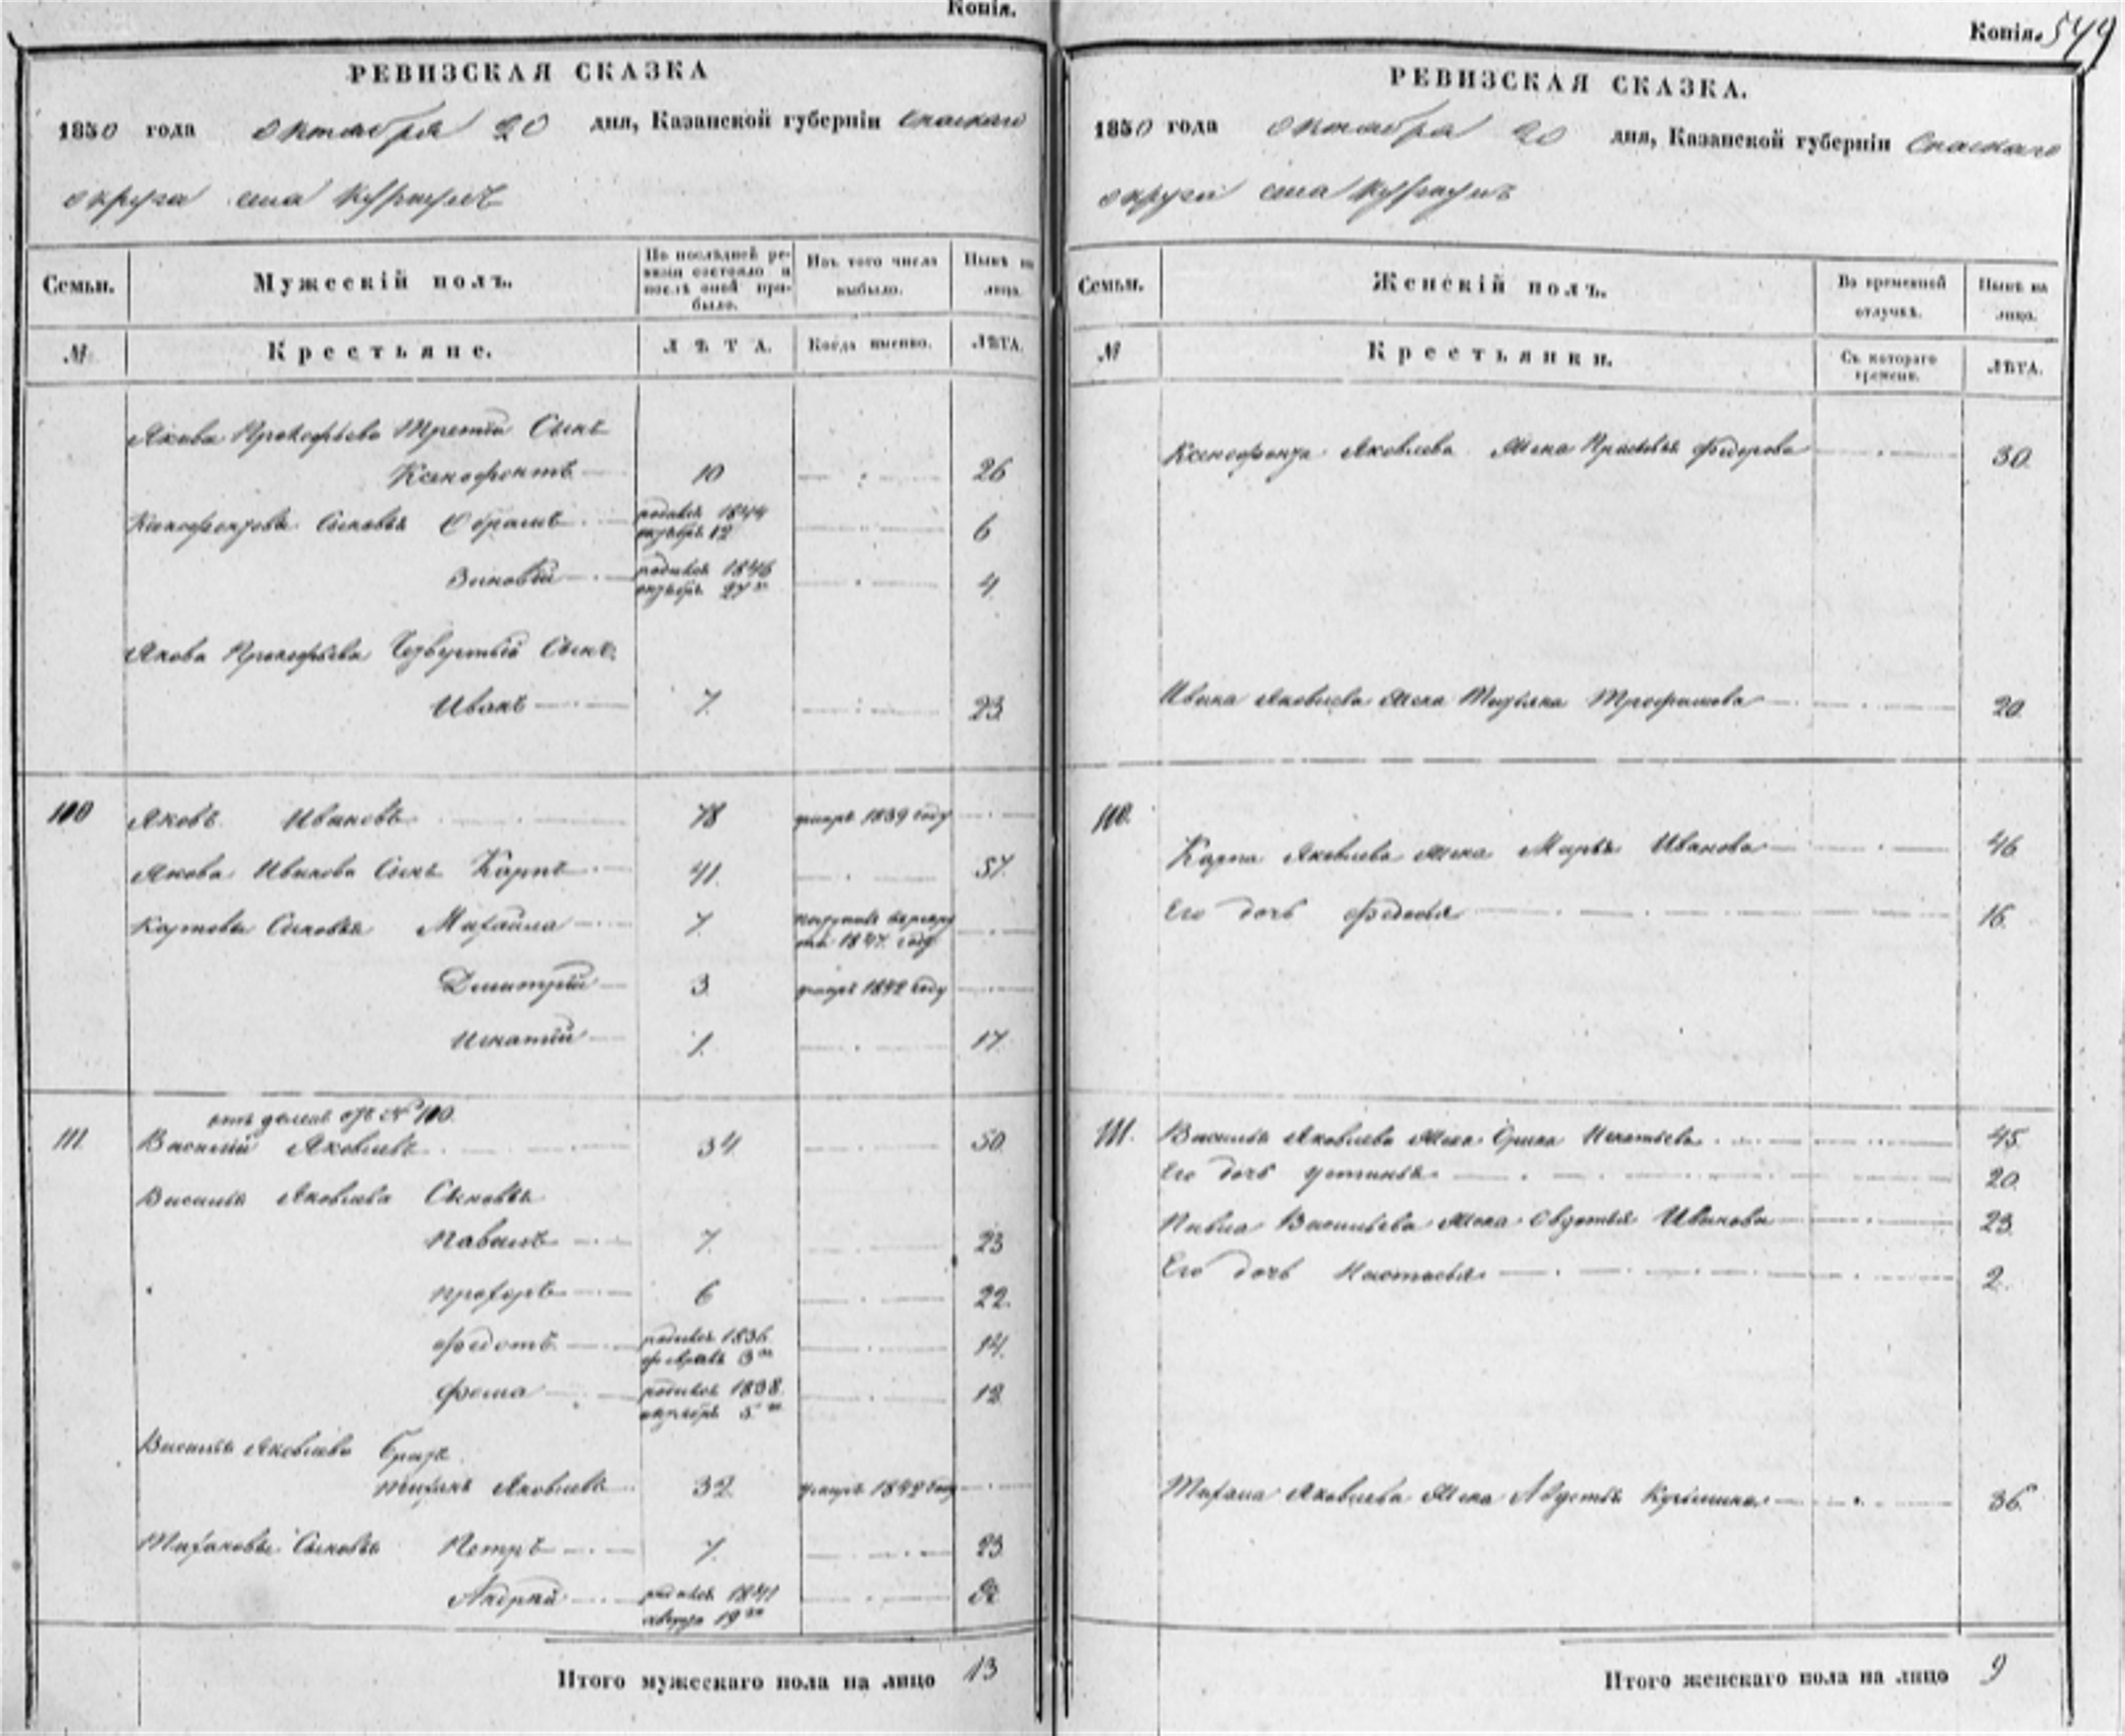 Копія.
РЕВИЗСКАЯ СКАЗКА
1850 года октября 20 дня, Казанской губерніи Спаскаго
округа села
Семьи.
Мужескій полъ.
По послѣдней ревизіи состояло и послѣ оной прибыло.
Изъ того числа выбыло.
Нынѣ на лицо.
№
Крестьяне.
ЛѢТА.
Когда именно.
ЛѢТА.
Якова Прокофьева Третій Сынъ
Ксенофонтъ 10 26
Ксенофонтовы Сыновья родился 1844 октября 12 6
Зиновій родился 1846 октября 27 4
Якова Прокофьева Четвертый Сынъ
Иванъ 7. 23
110 Яковъ Ивановъ 78 умеръ 1839 году
Якова Иванова Сынъ Карпъ 41. 57.
Карповы Сыновья Михайла 7. 1847 году
Дмитрій 3 умеръ 1842 году
Игнатій 1. 17.
отъ № 110.
111 Василій Яковлевъ 34 50
Василья Яковлева Сыновья
Павелъ 7. 23
Прохоръ 6 22.
Федотъ родился 1836 февраля 3 14.
Фома родился 1838 октября 5 12
Василья Яковлева братъ
Тихонъ Яковлевъ 32 умеръ 1842 году
Тихоновы Сыновья Петръ 7. 23
Андрей родился 1841 августа 19
Итого мужескаго пола на лицо 13
Копія. 549
РЕВИЗСКАЯ СКАЗКА.
1850 года октября 20 дня, Казанской губерніи Спаскаго
округа села
Семьи.
Женскій полъ.
Во временной отлучкѣ.
Нынѣ на лицо.
№
Крестьянки.
Съ котораго времени.
ЛѢТА.
Ксенофонта Яковлева Жена Прасковья Федорова 30
Ивана Яковлева Жена Татьяна Трофимова 20
110. Карпа Яковлева Жена Марья Иванова 46
Его дочь Федосья 16
111. Василья Яковлева Жена Ирина Игнатьева 45
Его дочь Устинья 20
Павла Васильева Жена Овдотья Иванова 23
Его дочь Настасья 2
Тихона Яковлева Жена Авдотья 36
Итого женскаго пола на лицо 9